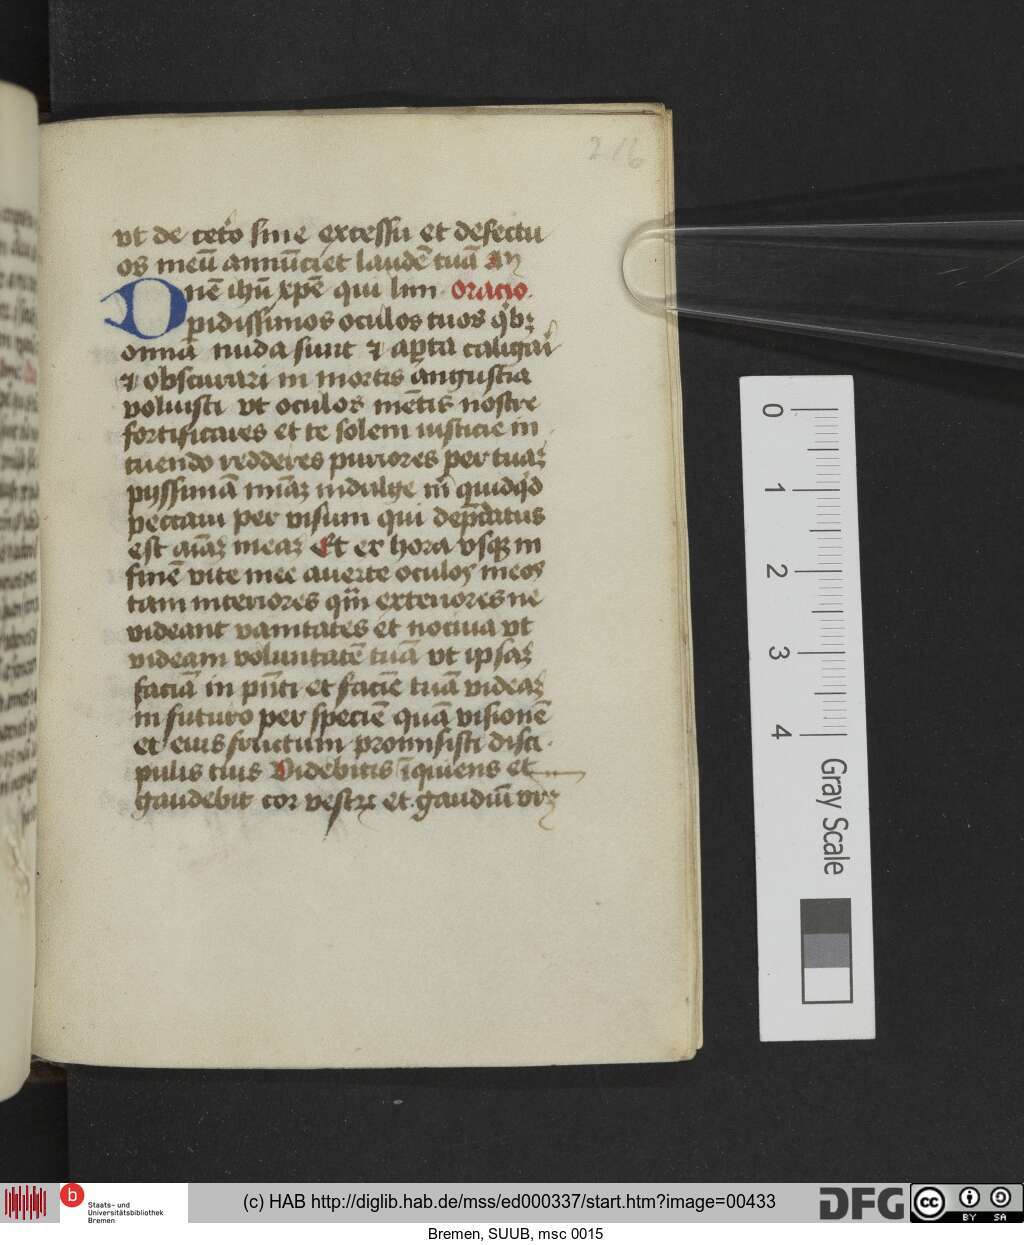 216
vt de cet͂o sine excessu et defectu
os meū annūciet laudē tuā
Dnē ihū xpē qui lim oracio.
pidissimos oculos tuos qͥbꝫ
omnia nuda sunt ⁊ aꝑta caligari
⁊ obscurari in mortis angustia
voluisti vt oculos mētis nostre
fortificares et te solem iusticie in
tuendo redderes puriores per tuaꝫ
pyssimā miāꝫ indulge m̄ quidqͥd
peccaui per visum qui dep̄datus
est aīaꝫ meaꝫ Et ex hora vsqꝫ in
finē vite mee auerte oculos meos
tam interiores qm̄ exteriores ne
videant vanitates et nociua vt
videam voluntatē tuā vt ipsaꝫ
faciā in pn̄ti et faciē tuā videaꝫ
in futuro per speciē quā visionē
et eius fructum promisisti disci
pulis tuis Videbitis īquiens et
gaudebit cor vestrꝫ et gaudiū vrꝫ
0
1
2
3
4
Gray Scale
b Staats- und
Universitätsbibliothek
Bremen
(c) HAB http://diglib.hab.de/mss/ed000337/start.htm?image=00433
DFG
cc BY SA
Bremen, SUUB, msc 0015